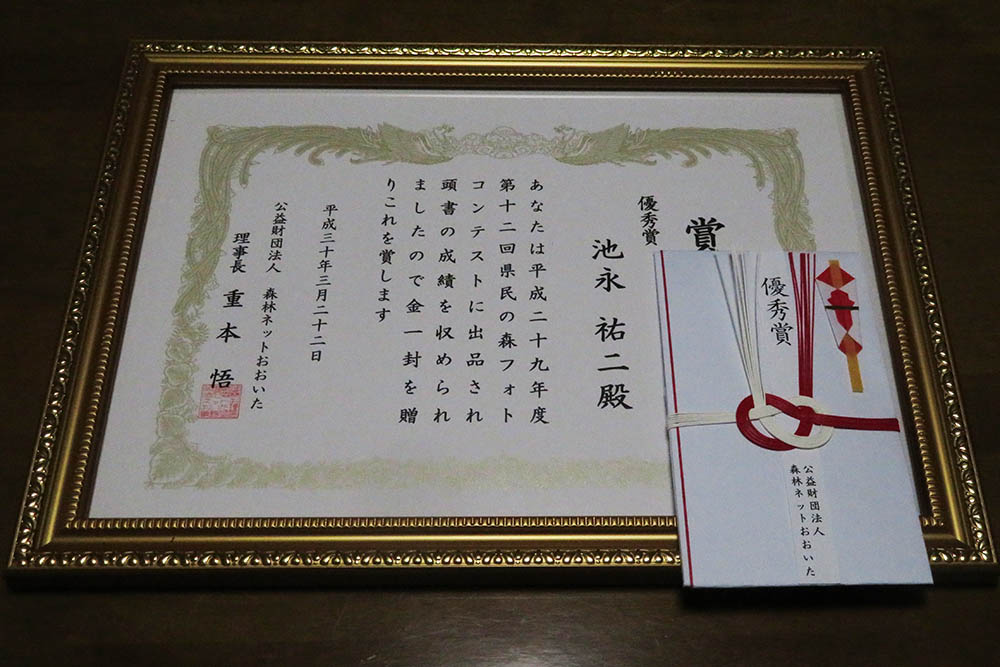 賞
優秀賞
池永祐二殿
あなたは平成二十九年度
第十二回県民の森フォト
コンテストに出品され
頭書の成績を収められ
ましたので金一封を贈
りこれを賞します
平成三十年三月二十二日
公益財団法人 森林ネットおおいた
理事長 重本 悟
優秀賞
公益財団法人
森林ネットおおいた